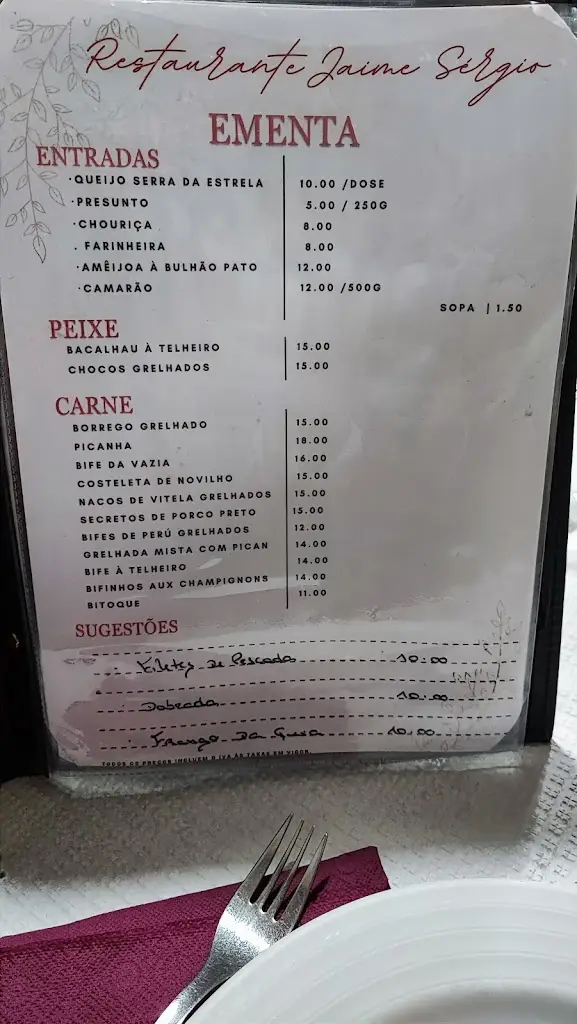 Restaurante Jaime Sérgio
EMENTA
ENTRADAS
·QUEIJO SERRA DA ESTRELA 10.00 /DOSE
·PRESUNTO 5.00 / 250G
·CHOURIÇA 8.00
. FARINHEIRA 8.00
·AMÊIJOA À BULHÃO PATO 12.00
·CAMARÃO 12.00 /500G
SOPA | 1.50
PEIXE
BACALHAU À TELHEIRO 15.00
CHOCOS GRELHADOS 15.00
CARNE
BORREGO GRELHADO 15.00
PICANHA 18.00
BIFE DA VAZIA 16.00
COSTELETA DE NOVILHO 15.00
NACOS DE VITELA GRELHADOS 15.00
SECRETOS DE PORCO PRETO 15.00
BIFES DE PERÚ GRELHADOS 12.00
GRELHADA MISTA COM PICAN 14.00
BIFE À TELHEIRO 14.00
BIFINHOS AUX CHAMPIGNONS 14.00
BITOQUE 11.00
SUGESTÕES
Filetes de Pescada 10.00
Dobrada 10.00
Frango Da 10.00
TODOS OS PREÇOS INCLUEM O IVA ÀS TAXAS EM VIGOR.